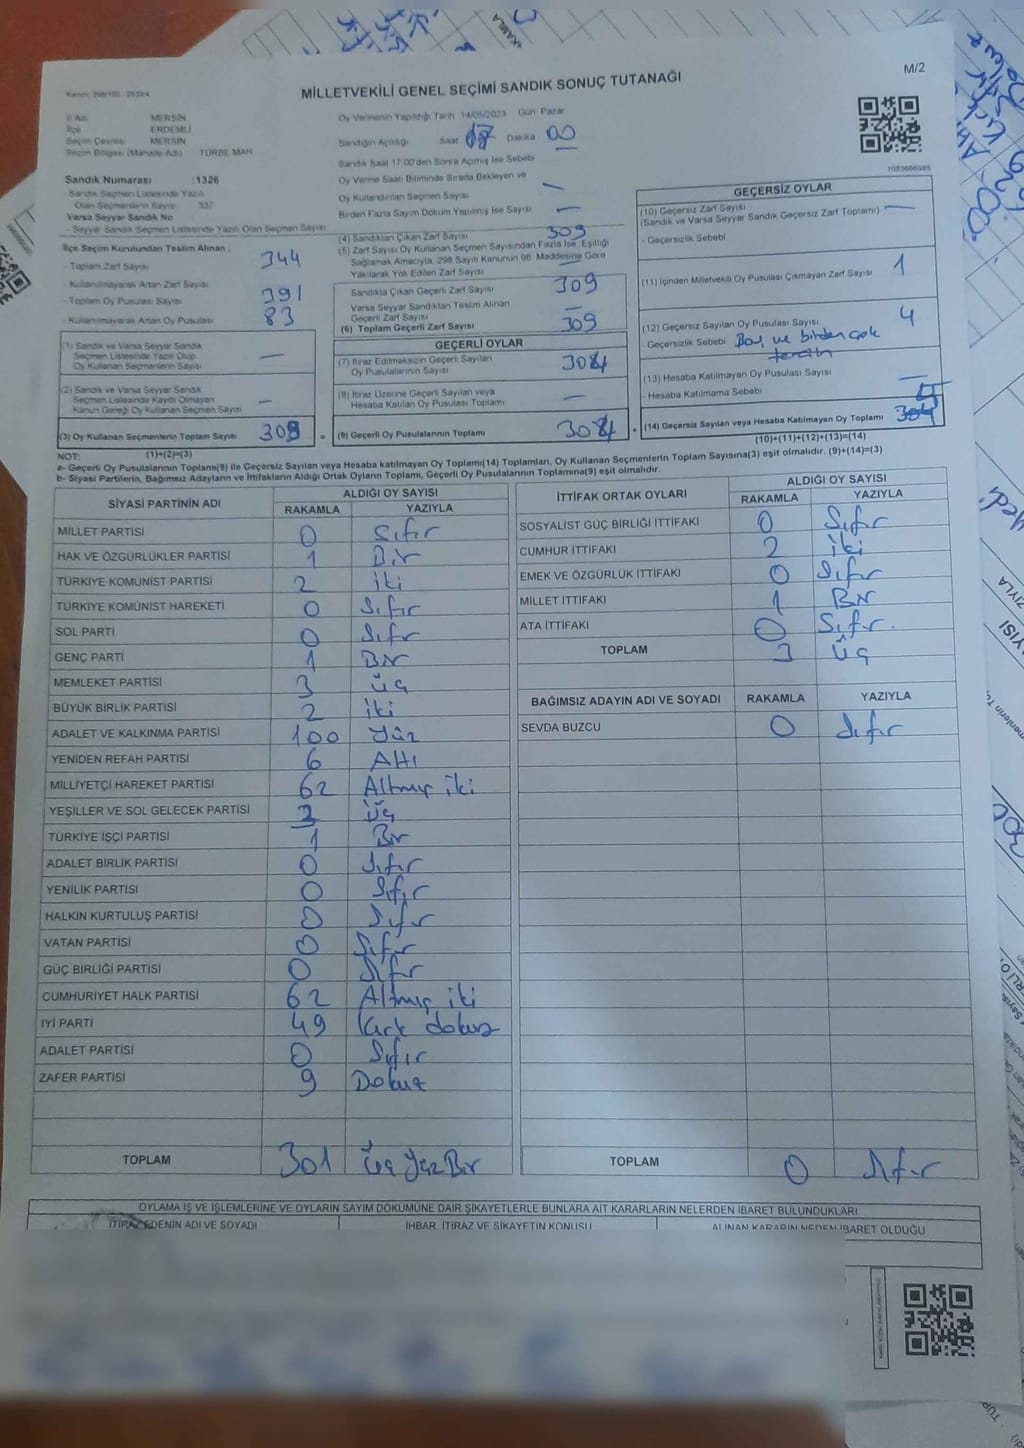 MİLLETVEKİLİ GENEL SEÇİMİ SANDIK SONUÇ TUTANAĞI
M/2
İl Adı MERSİN
İlçe ERDEMLİ
Seçim Çevresi MERSİN
Seçim Bölgesi (Mahalle Adı) TÜRBE MAH
Sandık Numarası :1326
- Sandık Seçmen Listesinde Yazılı
Olan Seçmenlerin Sayısı 337
Varsa Seyyar Sandık No
- Seyyar Sandık Seçmen Listesinde Yazılı Olan Seçmen Sayısı
Oy Vermenin Yapıldığı Tarih 14/05/2023 Gün Pazar
Sandığın Açıldığı Saat 17 Dakika 00
Sandık Saat 17:00'den Sonra Açılmış İse Sebebi
Oy Verme Saati Bitiminde Sırada Bekleyen ve
Oy Kullandırılan Seçmen Sayısı —
Birden Fazla Sayım Döküm Yapılmış İse Sayısı —
İlçe Seçim Kurulundan Teslim Alınan :
- Toplam Zarf Sayısı 344
- Kullanılmayarak Artan Zarf Sayısı
- Toplam Oy Pusulası Sayısı 391
- Kullanılmayarak Artan Oy Pusulası 83
(1) Sandık ve Varsa Seyyar Sandık
Seçmen Listesinde Yazılı Olup
Oy Kullanan Seçmenlerin Sayısı —
(2) Sandık ve Varsa Seyyar Sandık
Seçmen Listesinde Kayıtlı Olmayan
Kanun Gereği Oy Kullanan Seçmen Sayısı —
(3) Oy Kullanan Seçmenlerin Toplam Sayısı 309
(1)+(2)=(3)
(4) Sandıktan Çıkan Zarf Sayısı 309
(5) Zarf Sayısı Oy Kullanan Seçmen Sayısından Fazla İse, Eşitliği
Sağlamak Amacıyla, 298 Sayılı Kanunun 98. Maddesine Göre
Yakılarak Yok Edilen Zarf Sayısı —
Sandıkta Çıkan Geçerli Zarf Sayısı 309
Varsa Seyyar Sandıktan Teslim Alınan
Geçerli Zarf Sayısı —
(6) Toplam Geçerli Zarf Sayısı 309
GEÇERLİ OYLAR
(7) İtiraz Edilmeksizin Geçerli Sayılan
Oy Pusulalarının Sayısı 304
(8) İtiraz Üzerine Geçerli Sayılan veya
Hesaba Katılan Oy Pusulası Toplamı —
(9) Geçerli Oy Pusulalarının Toplamı 304
GEÇERSİZ OYLAR
(10) Geçersiz Zarf Sayısı
(Sandık ve Varsa Seyyar Sandık Geçersiz Zarf Toplamı) —
- Geçersizlik Sebebi
(11) İçinden Milletvekili Oy Pusulası Çıkmayan Zarf Sayısı 1
(12) Geçersiz Sayılan Oy Pusulası Sayısı 4
- Geçersizlik Sebebi Boş ve birden çok
tercih
(13) Hesaba Katılmayan Oy Pusulası Sayısı —
- Hesaba Katılmama Sebebi
(14) Geçersiz Sayılan veya Hesaba Katılmayan Oy Toplamı 5
(10)+(11)+(12)+(13)=(14)
NOT:
a- Geçerli Oy Pusulalarının Toplamı(9) ile Geçersiz Sayılan veya Hesaba katılmayan Oy Toplamı(14) Toplamları, Oy Kullanan Seçmenlerin Toplam Sayısına(3) eşit olmalıdır. (9)+(14)=(3)
b- Siyasi Partilerin, Bağımsız Adayların ve İttifakların Aldığı Ortak Oyların Toplamı, Geçerli Oy Pusulalarının Toplamına(9) eşit olmalıdır.
SİYASİ PARTİNİN ADI ALDIĞI OY SAYISI
RAKAMLA YAZIYLA
MİLLET PARTİSİ 0 Sıfır
HAK VE ÖZGÜRLÜKLER PARTİSİ 1 Bir
TÜRKİYE KOMÜNİST PARTİSİ 2 iki
TÜRKİYE KOMÜNİST HAREKETİ 0 Sıfır
SOL PARTİ 0 Sıfır
GENÇ PARTİ 1 Bir
MEMLEKET PARTİSİ 3 üç
BÜYÜK BİRLİK PARTİSİ 2 iki
ADALET VE KALKINMA PARTİSİ 100 Yüz
YENİDEN REFAH PARTİSİ 6 Altı
MİLLİYETÇİ HAREKET PARTİSİ 62 Altmış iki
YEŞİLLER VE SOL GELECEK PARTİSİ 3 üç
TÜRKİYE İŞÇİ PARTİSİ 1 Bir
ADALET BİRLİK PARTİSİ 0 Sıfır
YENİLİK PARTİSİ 0 Sıfır
HALKIN KURTULUŞ PARTİSİ 0 Sıfır
VATAN PARTİSİ 0 Sıfır
GÜÇ BİRLİĞİ PARTİSİ 0 Sıfır
CUMHURİYET HALK PARTİSİ 62 Altmış iki
İYİ PARTİ 49 Kırk dokuz
ADALET PARTİSİ 0 Sıfır
ZAFER PARTİSİ 9 Dokuz
TOPLAM 301 Üç Yüz Bir
İTTİFAK ORTAK OYLARI ALDIĞI OY SAYISI
RAKAMLA YAZIYLA
SOSYALİST GÜÇ BİRLİĞİ İTTİFAKI 0 Sıfır
CUMHUR İTTİFAKI 2 iki
EMEK VE ÖZGÜRLÜK İTTİFAKI 0 Sıfır
MİLLET İTTİFAKI 1 Bir
ATA İTTİFAKI 0 Sıfır.
TOPLAM 3 üç
BAĞIMSIZ ADAYIN ADI VE SOYADI RAKAMLA YAZIYLA
SEVDA BUZCU 0 Sıfır
TOPLAM 0 Sıfır
OYLAMA İŞ VE İŞLEMLERİNE VE OYLARIN SAYIM DÖKÜMÜNE DAİR ŞİKAYETLERLE BUNLARA AİT KARARLARIN NELERDEN İBARET BULUNDUKLARI
İTİRAZ EDENİN ADI VE SOYADI İHBAR, İTİRAZ VE ŞİKAYETİN KONUSU ALINAN KARARIN NEDEN İBARET OLDUĞU